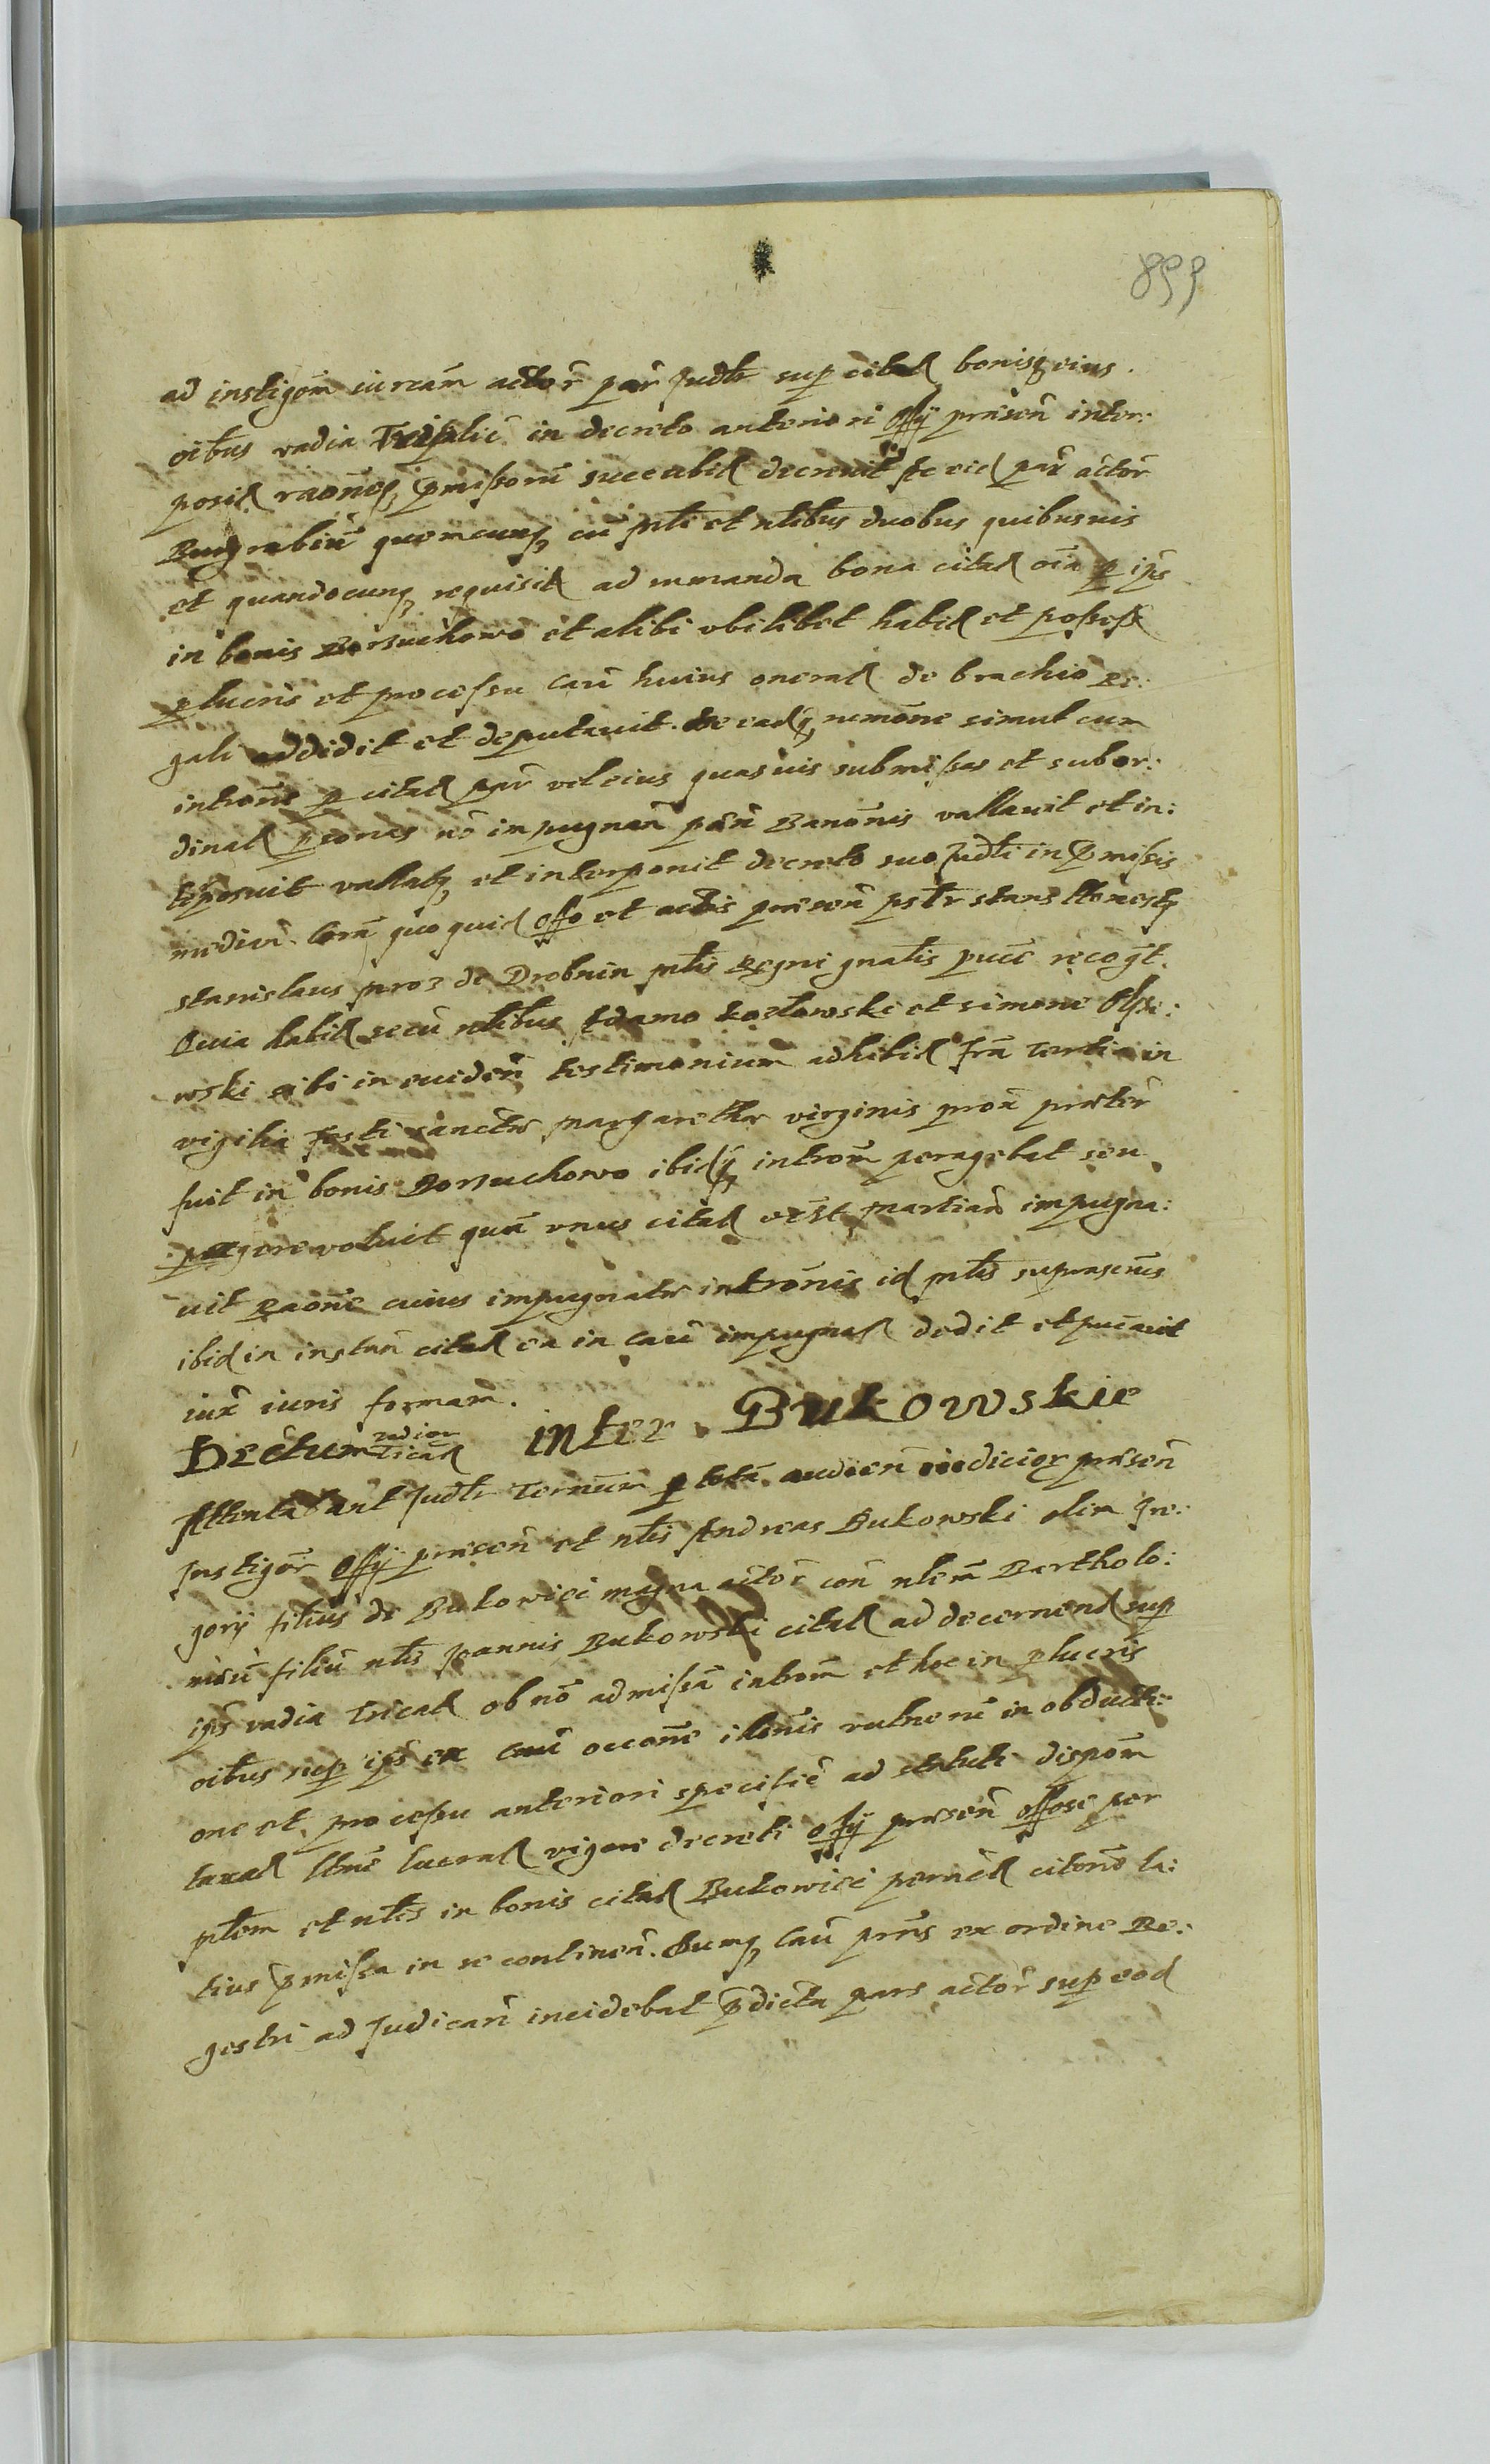 899
ad instigõm iuream actor par Judtr sup citat bonisq eius
oibus vadia Triplic in decreto anteriori Offy præsen inter:
posit raones pmissorum succubit decrevit Ac eid par actor
Burgrabium quemcunq cu mtli et ntibus duobus quibusvis
et quandocunq requisit ad mmanda bona citat oia p ips
in bonis Borzuchowo et alibi ubilibet habit et possess
p lucris et processu cau huius onerat de brachio Re:
gali addidit et deputavit. Ac eadq rumone simul cum
introne p citat par vel eius quasvis submissas et subor:
dinat pronas ne impugnan pan Banonis vallavit et in:
terposuit vallatq et interponit decreto suo Judtli in pmissis
median. Coram quo quid offo et actis præsen pstr stans Honestq
stanislaus proz de Drobnin mtlis Regni gnalis puce recogt.
Quia habit secu ntibus Adamo kozlowski et simone Olsze:
wski sibi in eviden testimonium adhibit fra tertia in
vigilia festi sanctæ Margarethæ virginis prox præter
fuit in bonis Borzuchowo ibidq introm peragebat seu
peragere voluit quam unus citat vest Martian impugna:
vit Raone cuius impugnatæ intronis id mtlis suprascus
ibid in instan citat ea in cau impugnat dedit et pucavit
iux iuris formam.
Dectum vadior Tricat inter Bukowskie
Attentabant Judtr Ternum p totam audien iudicior præsen
Instigor Offy præsen et ntlis Andreas Bukowski olim Gre:
gorij filius de Bukowiec magna actor con ntlem Bartholo:
mæu filiu ntlis Joannis Bukowski citat ad decernend sup
ips vadia Tricat ob no admissa introm et hoc in p lucris
oibus sup ips ex cau occone illonis vulneru in obducti:
one et processu anteriori specific ad statuti disposm
taxat ltme lucrat vigore decreti Offy præsen offose per
mtlem et ntles in bonis citat Bukowiec ponit citone la:
tius pmissa in se continen. Dumq cau prns ex ordine Re:
gestri ad Judicari incidebat pdicta pars actor sup eod